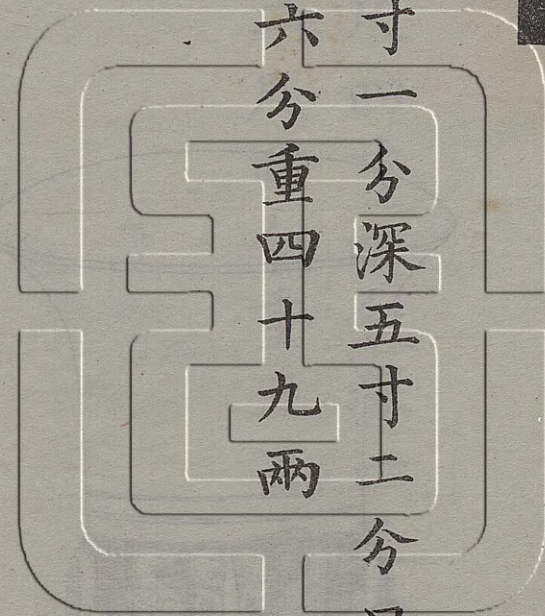 寸一分深五寸二分
六分重四十九兩